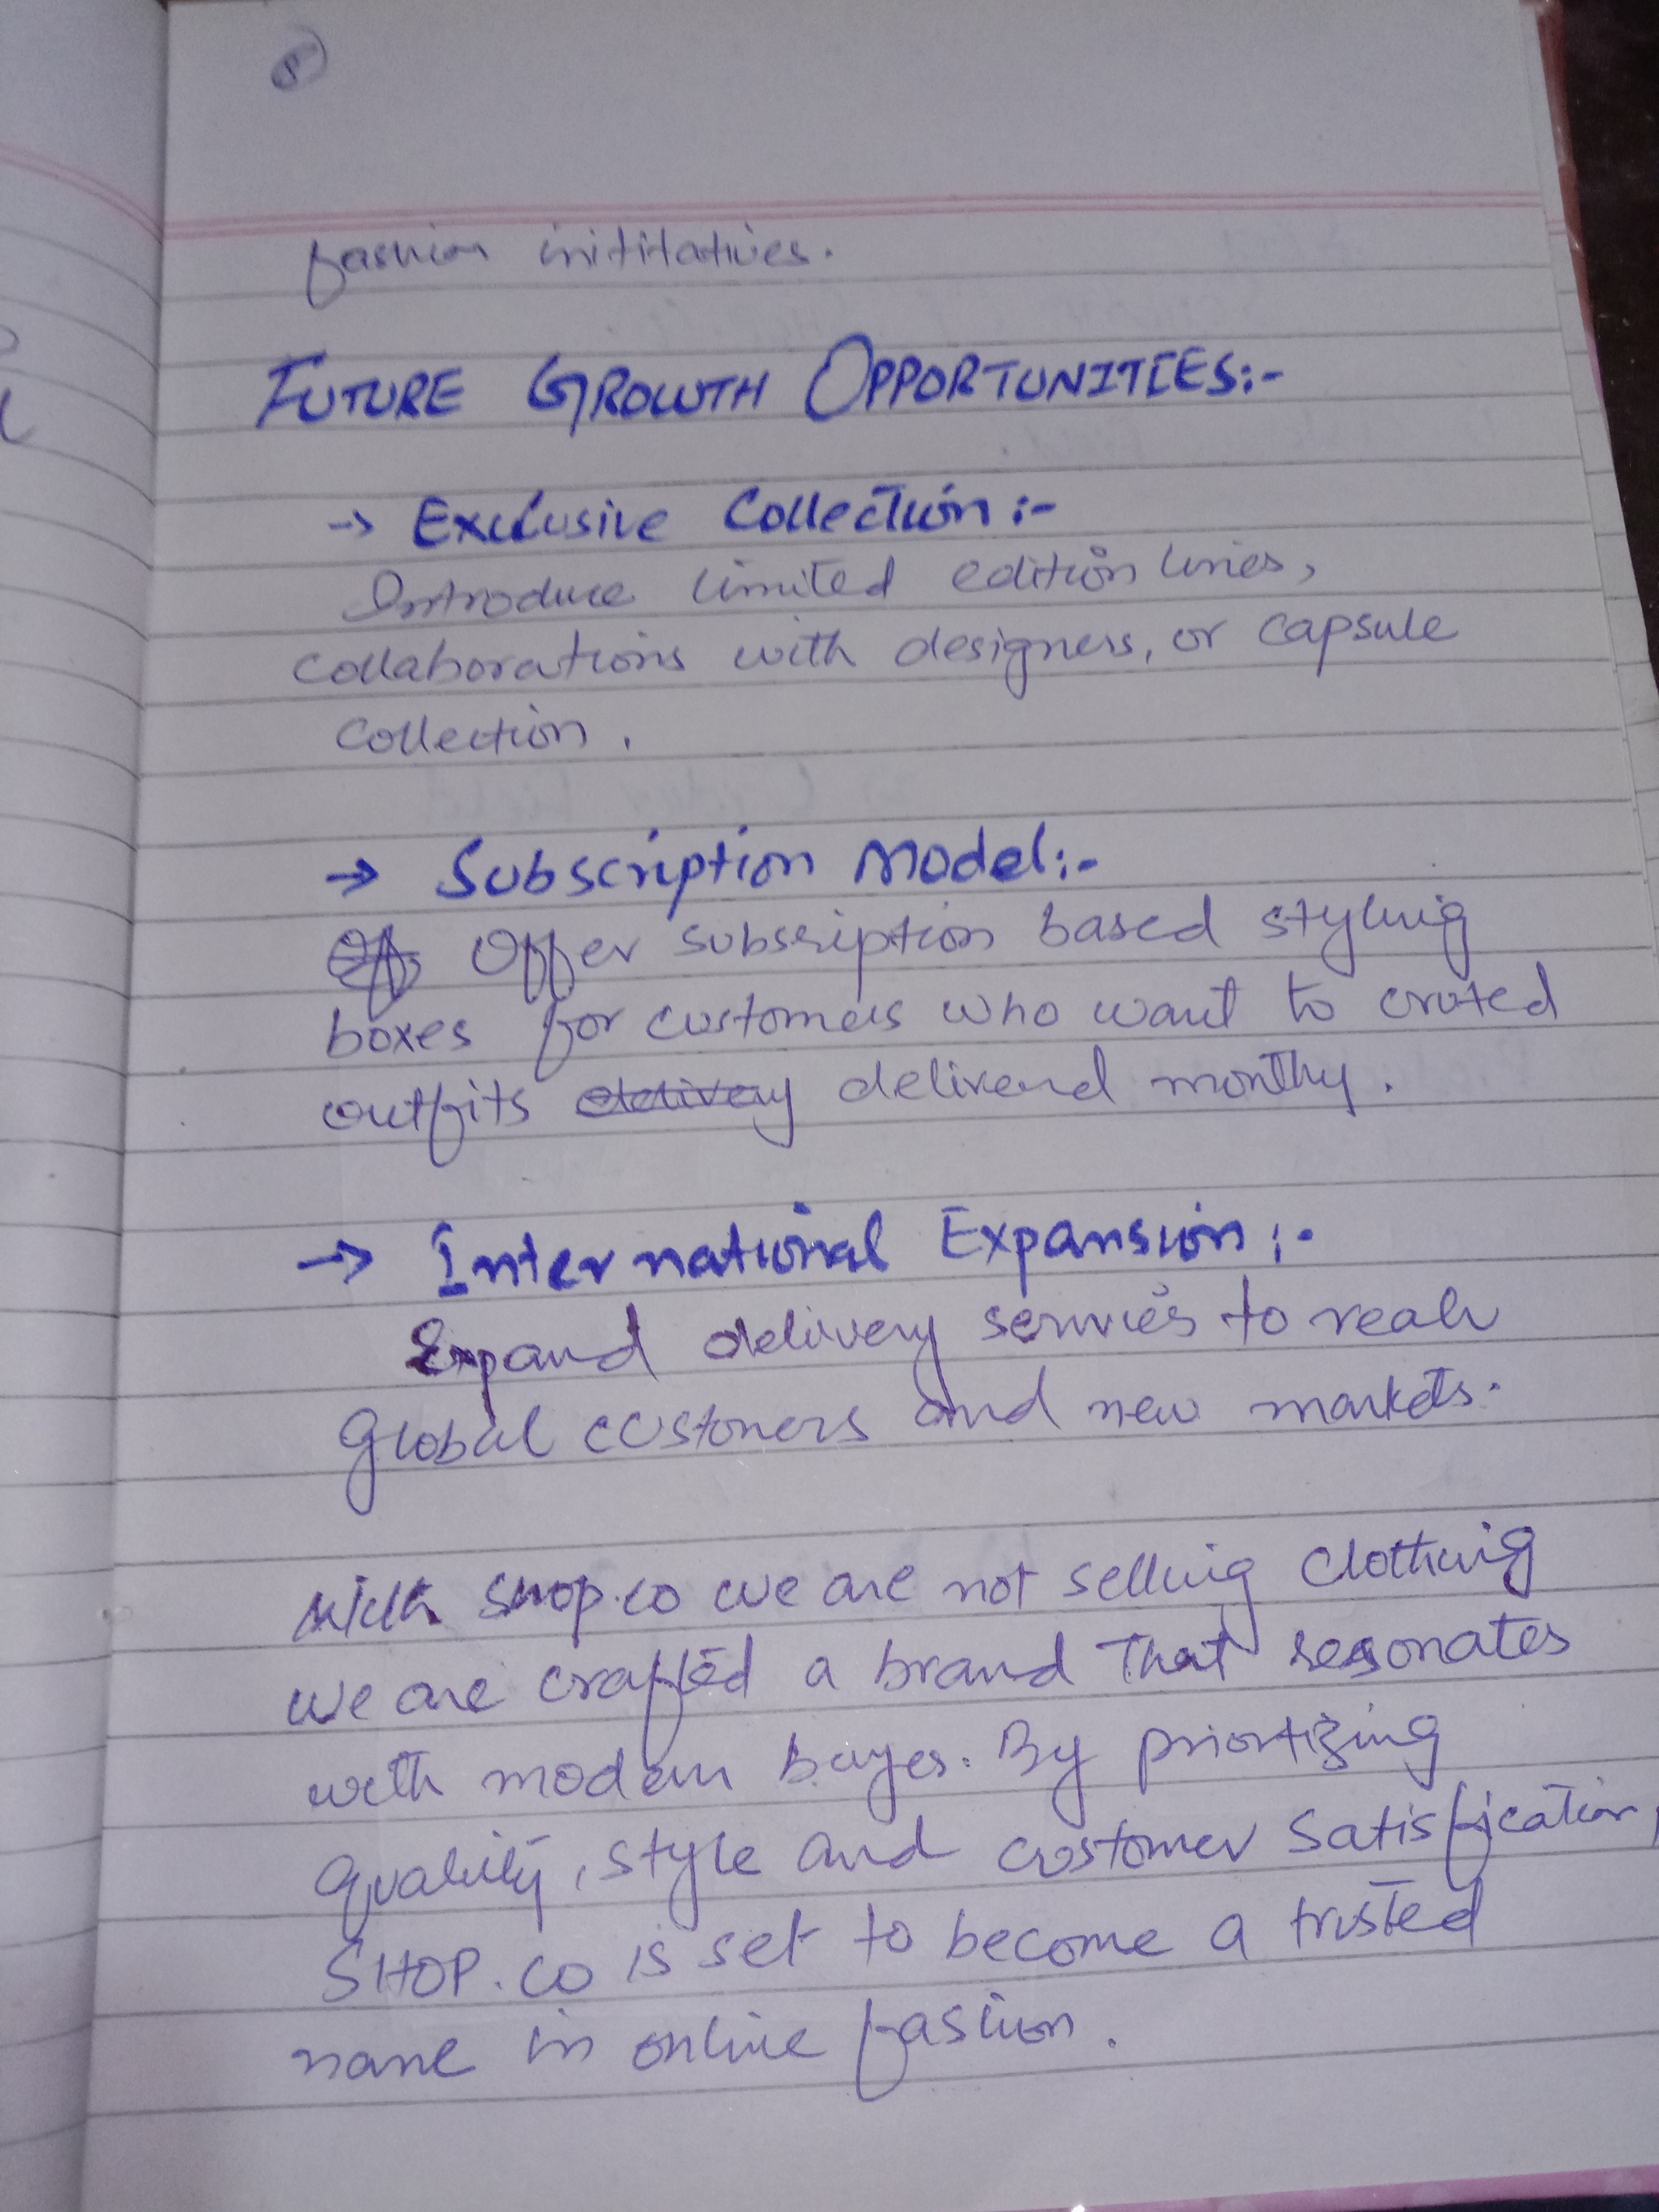 8
fashion inititatives.
FUTURE GROWTH OPPORTUNITIES:-
→ Exclusive Collection:-
Introduce limited edition lines,
collaborations with designers, or capsule
collection.
→ Subscription Model:-
Offer subscription based styling
boxes for customers who want to crated
outfits delivery delivered monthy.
→ International Expansion:-
Expand delivery services to reah
Global customers and new markets.
With Shop.co we are not selling clothing
we are crafted a brand That resonates
with modern buyes. By priortizing
quality, style and customer satisfication,
SHOP.CO is set to become a trusted
name in online fashion.